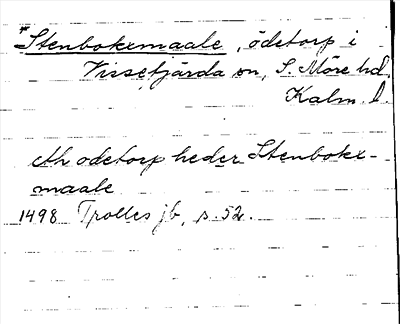 *Stenbokxmaale, ödetorp i
Vissefjärda sn, S. Möre hd,
Kalm. l.
eth odetorp heder Stenbokx-
maale
1498 Trolles jb, s. 52.